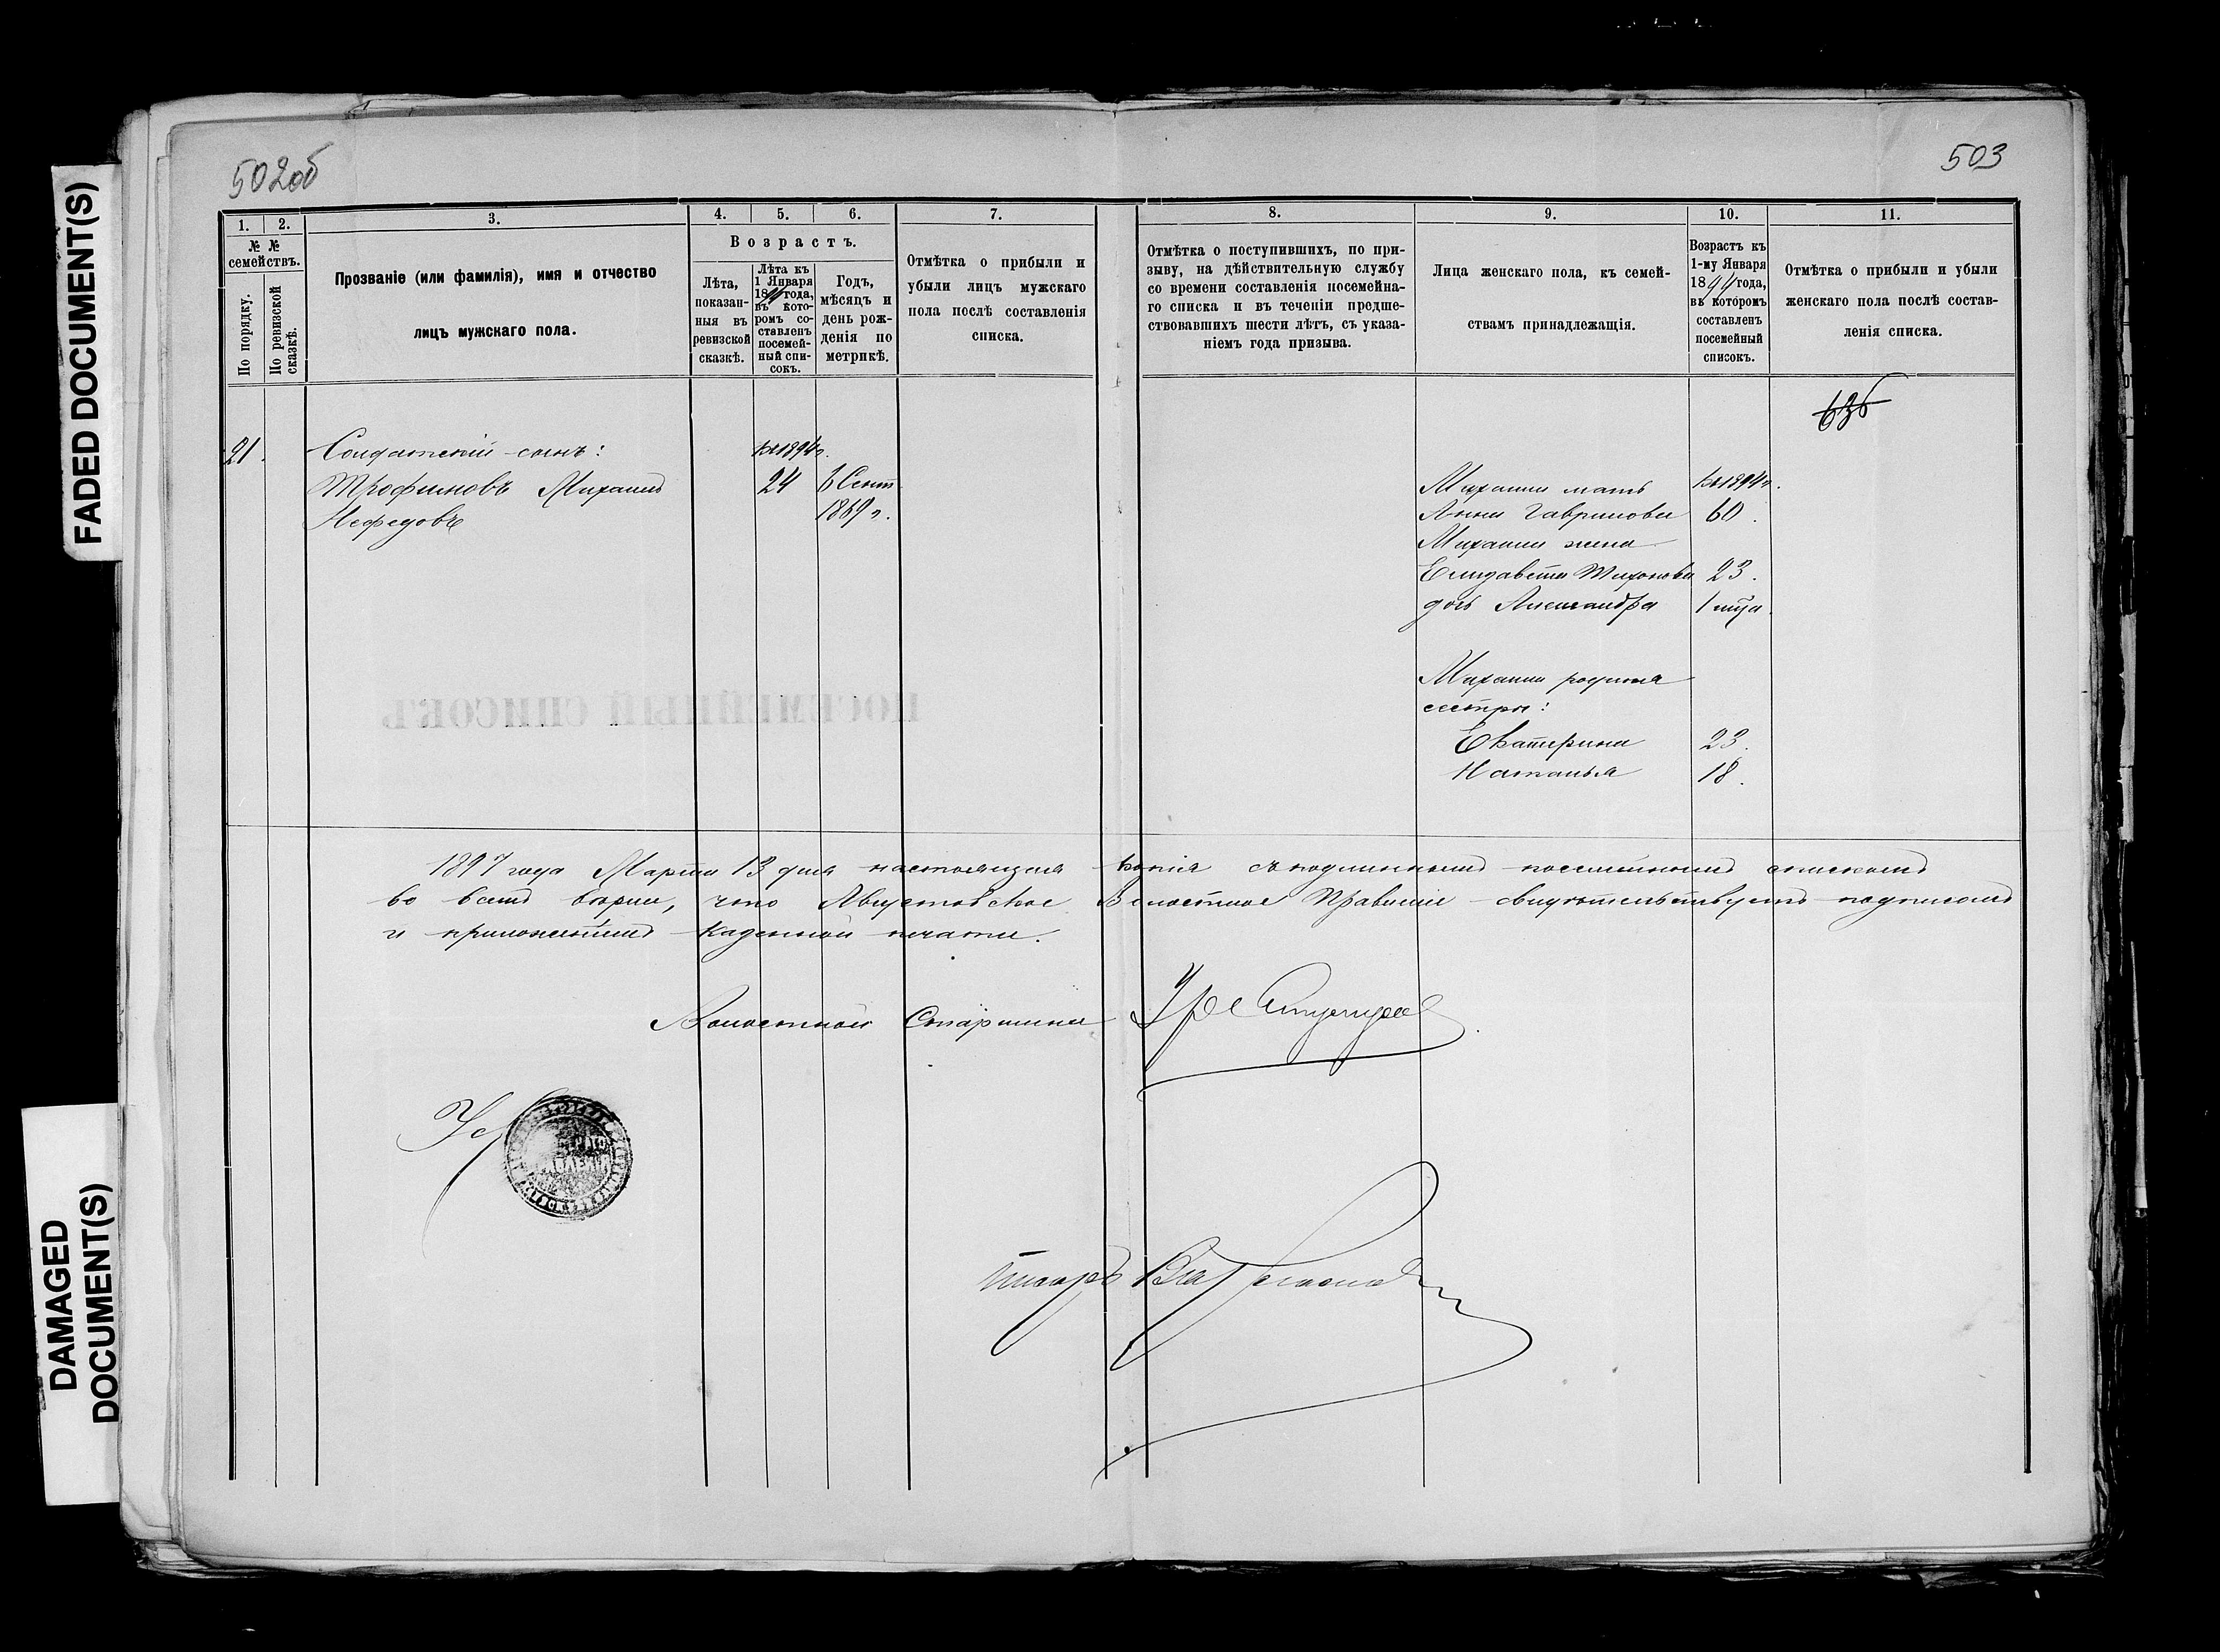 FADED DOCUMENT(S)
DAMAGED
DOCUMENT(S)
502об
503
1.
2.
3.
4.
5.
6.
7.
8.
9.
10.
11.
№ №
семействъ.
По порядку.
По ревизской
сказкѣ.
Прозваніе (или фамилія), имя и отчество
лицъ мужскаго пола.
Возрастъ.
Лѣта,
показан-
ныя въ
ревизской
сказкѣ.
Лѣта къ
1 Января
1894 года,
въ кото-
ромъ со-
ставленъ
посемей-
ный спи-
сокъ.
Годъ,
мѣсяцъ и
день рож-
денія по
метрикѣ.
Отмѣтка о прибыли и
убыли лицъ мужскаго
пола послѣ составленія
списка.
Отмѣтка о поступившихъ, по при-
зыву, на дѣйствительную службу
со времени составленія посемейна-
го списка и въ теченіи предше-
ствовавшихъ шести лѣтъ, съ указа-
ніемъ года призыва.
Лица женскаго пола, къ семей-
ствамъ принадлежащія.
Возрастъ къ
1-му Января
1894 года,
въ которомъ
составленъ
посемейный
списокъ.
Отмѣтка о прибыли и убыли
женскаго пола послѣ состав-
ленія списка.
636
21.
Солдатскій сынъ:
Трофимовъ Михаилъ
Нефедовъ
Въ 1894 г.
24
6 Сент
1869 г.
Михаила мать
Анна Гаврилова
Михаила жена
Елизавета Тихонова
дочь Александра
Михаила родныя
сестры:
Екатерина
Наталья
Въ 1894 г.
60.
23.
1 мѣсца.
23.
18.
ПОСЕМЕЙНЫЙ СПИСОКЪ
1897 года Марта 13 дня настоящая копія съ подлиннымъ посемейнымъ спискомъ
во всемъ вѣрна, что Августовское Волостное Правленіе свидѣтельствуетъ подписомъ
и приложеніемъ казенной печати.
Волостной Старшина
Писарь